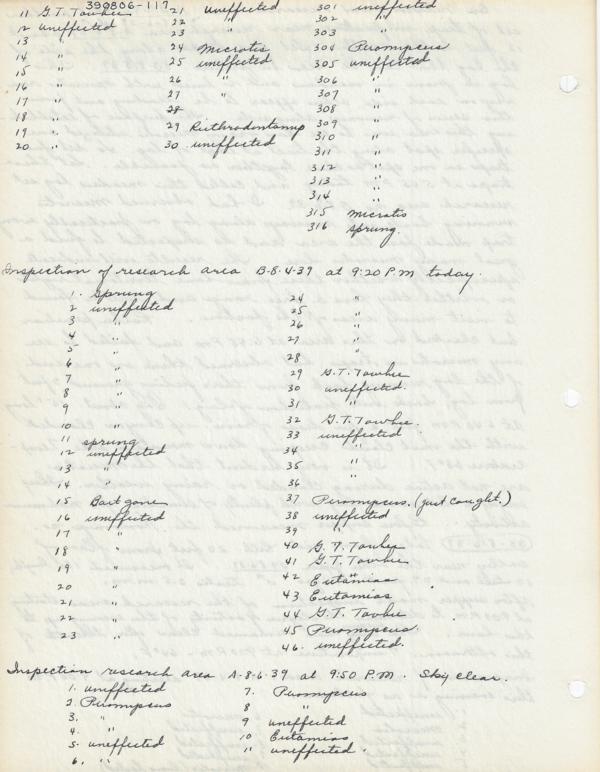 390806-117
11 G.T. Towhee
12 uneffected
13 "
14 "
15 "
16 "
17 "
18 "
19 "
20 "
21 uneffected
22 "
23 "
24 Microtis
25 uneffected
26 "
27 "
28
29
30 uneffected
301 uneffected
302 "
303 "
304 Peromyscus
305 uneffected
306 "
307 "
308 "
309 "
310 "
311 "
312 "
313 "
314 "
315 Microtis
316 sprung.
Inspection of research area B-8-4-39 at 9:20 P.M today.
1. Sprung
2 uneffected
3 "
4 "
5 "
6 "
7 "
8 "
9 "
10 "
11 sprung
12 uneffected
13 "
14 "
15 Bait gone
16 uneffected
17 "
18 "
19 "
20 "
21 "
22 "
23 "
24 "
25 "
26 "
27 "
28 "
29 G.T. Towhee
30 uneffected.
31 "
32 G.T. Towhee.
33 uneffected
34 "
35 "
36 "
37 Peromyscus. (just caught.)
38 uneffected
39 "
40 G.T. Towhee
41 G.T. Towhee
42 Eutamias
43 Eutamias
44 G.T. Towhee
45 Peromyscus.
46. uneffected.
Inspection research area A-8-6-39 at 9:50 P.M. Sky clear.
1. uneffected
2. Peromyscus
3. "
4. "
5. uneffected
6. "
7. Peromyscus
8 "
9 uneffected
10 Eutamias
11 uneffected.